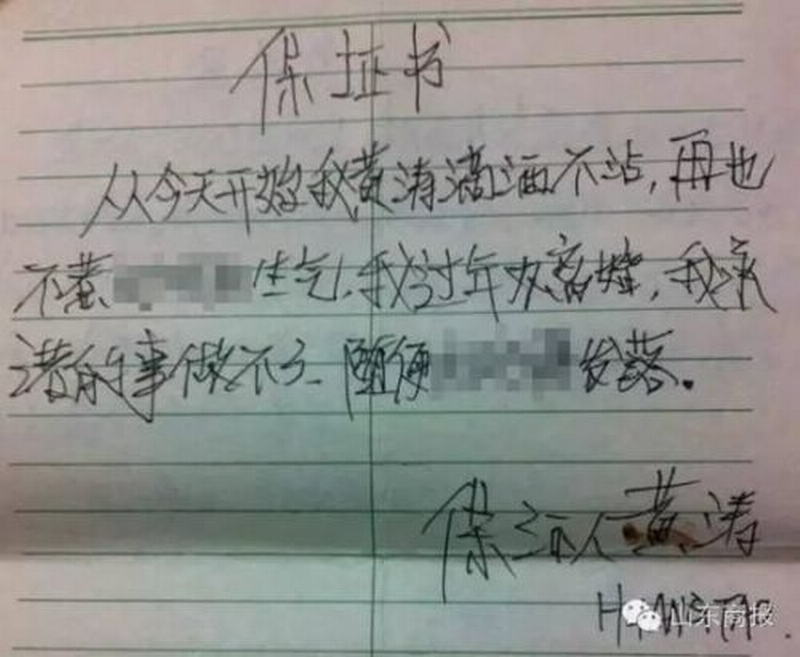 保证书
从今天开始我黄涛滴酒不沾,再也
不惹生气,我过年办离婚,我承
诺的事做不了 随便发落.
保证人黄涛
山东商报